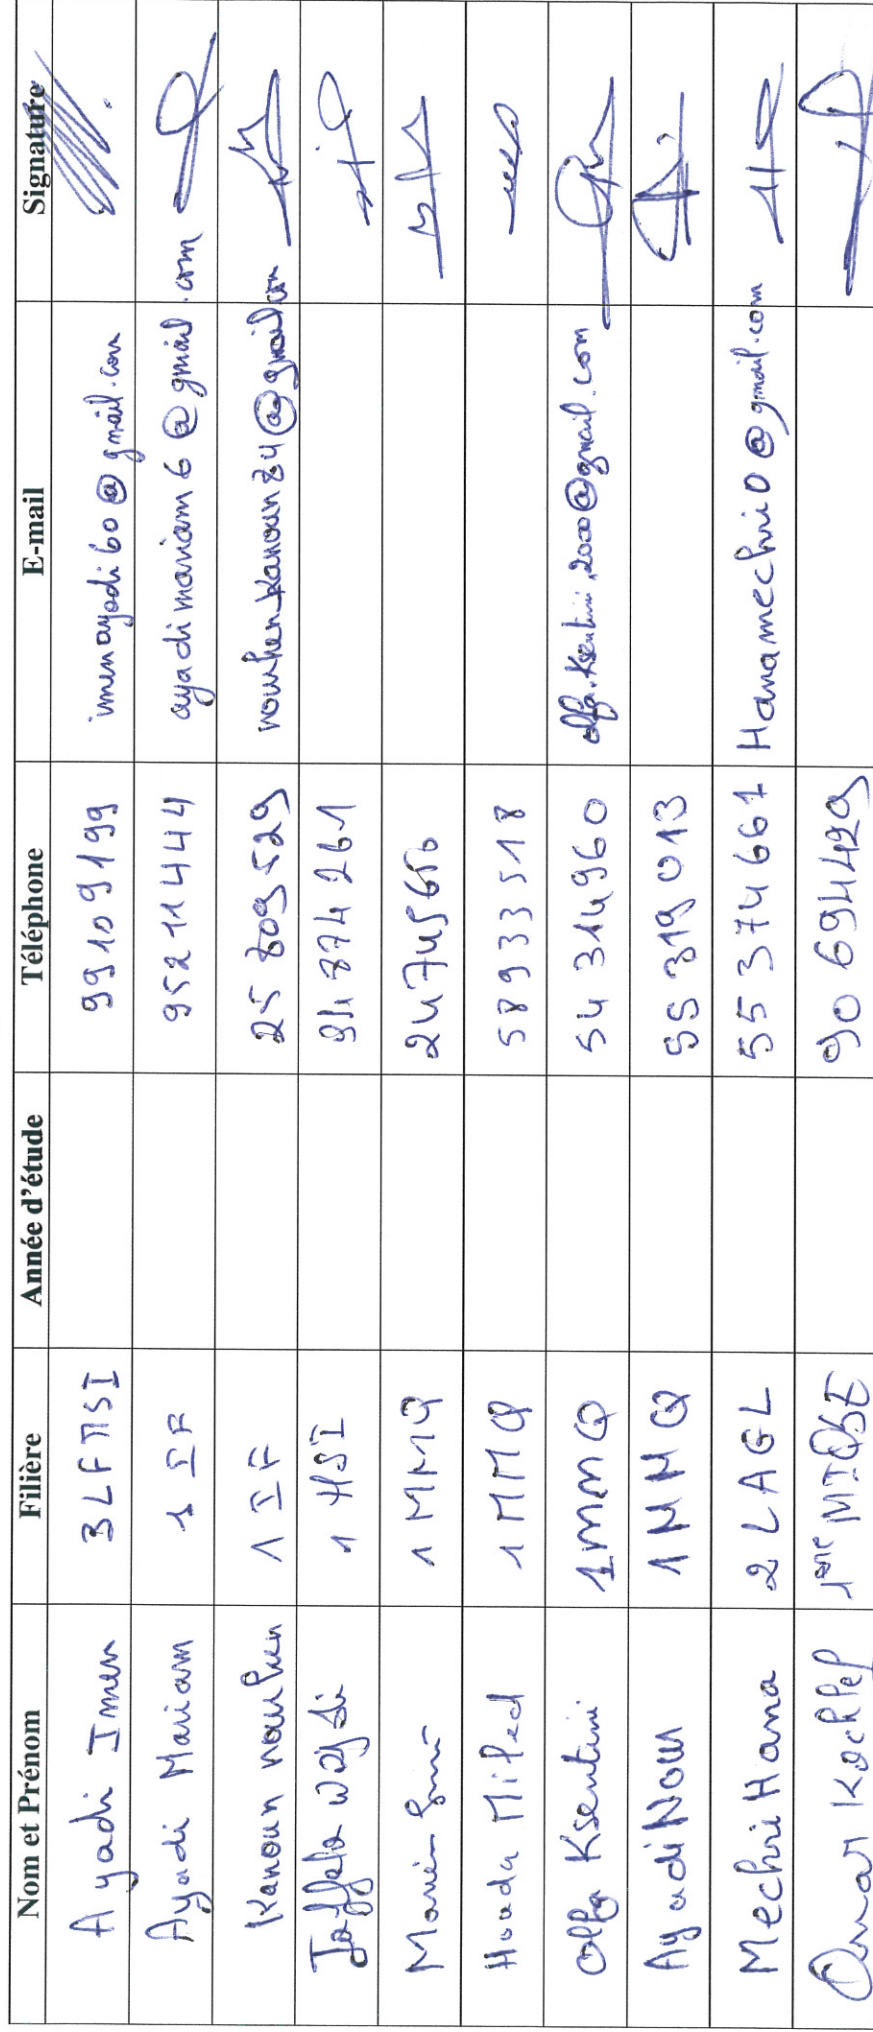 Nom et Prénom Filière Année d'étude Téléphone E-mail Signature
Ayadi Imen 3 LFMSI 99109199 imenayadi60@gmail.com
Ayadi Mariam 1 IF 95211444 ayadimariam6@gmail.com
Kanoun nourhen 1 IF 25 809 529
wajdi 1 HSI 94 874 261
1 MMQ
Houda Miled 1 MMQ 58933518
Olfa Ksentini 1 MMQ 54 314960 olfa.ksentini.2000@gmail.com
Ayadi Nour 1 MMQ 55 319 013
Mechri Hana 2 LAGL 55 374 661 Hanamechri0@gmail.com
Omar Kochlef 1ère MIQSE 90 694429